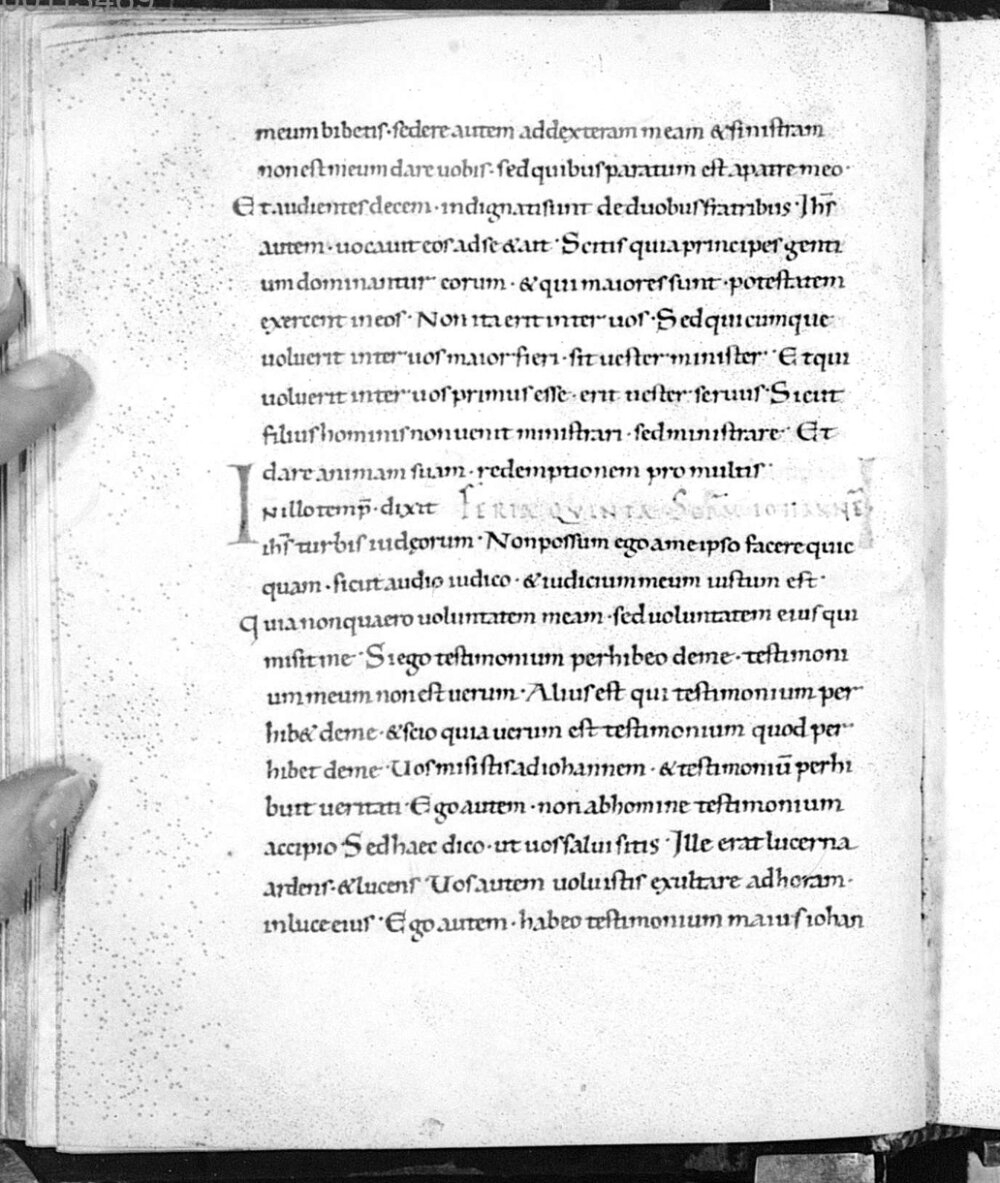 meum bibetis · sedere autem ad dexteram meam & sinistram
non est meum dare uobis · sed quibus paratum est a patre meo ·
Et audientes decem · indignati sunt de duobus fratribus · Ihs̄
autem · uocauit eos ad se & ait · Scitis quia principes genti
um dominantur eorum · & qui maiores sunt · potestatem
exercent in eos · Non ita erit inter uos · Sed quicumque
uoluerit inter uos maior fieri · sit uester minister · Et qui
uoluerit inter uos primus esse · erit uester seruus · Sicut
filius hominis non uenit ministrari · sed ministrare · Et
dare animam suam · redemptionem pro multis ·
In illo temp̄ · dixit FERIA QUINTA Scdm̄ IOHANNĒ
ihs̄ turbis iudęorum · Non possum ego a me ipso facere quic
quam · sicut audio iudico · & iudicium meum iustum est ·
Quia non quaero uoluntatem meam · sed uoluntatem eius qui
misit me · Si ego testimonium perhibeo de me · testimoni
um meum non est uerum · Alius est qui testimonium per
hib& de me · & scio quia uerum est testimonium quod per
hibet de me · Uos misistis ad iohannem · & testimoniū perhi
buit ueritati · Ego autem · non ab homine testimonium
accipio · Sed haec dico · ut uos salui sitis · Ille erat lucerna
ardens · & lucens · Uos autem uoluistis exultare ad horam ·
in luce eius · Ego autem · habeo testimonium maius iohan